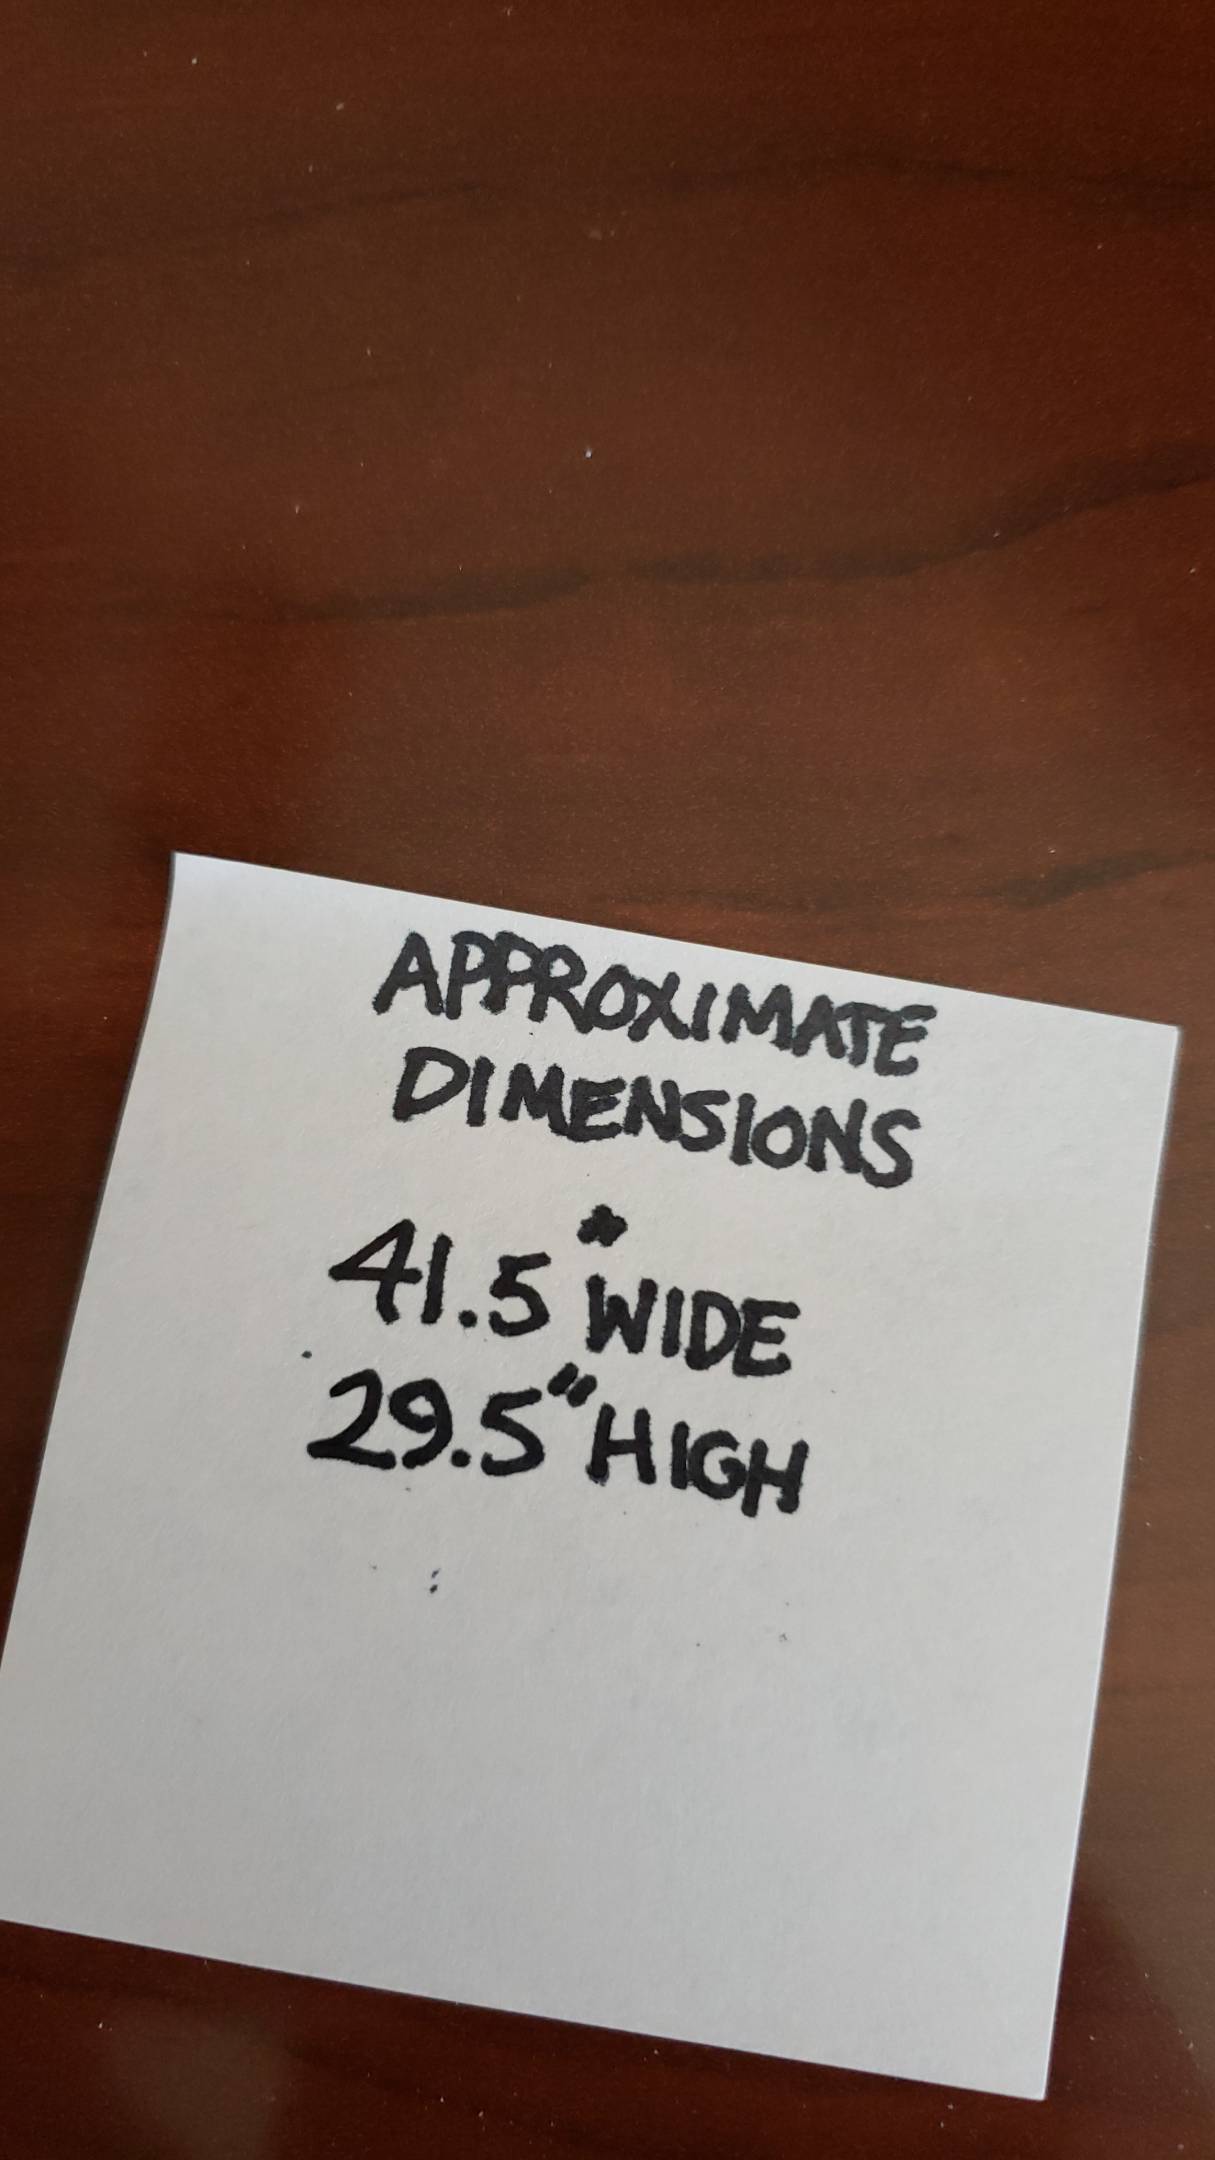 APPROXIMATE
DIMENSIONS
41.5" WIDE
29.5" HIGH